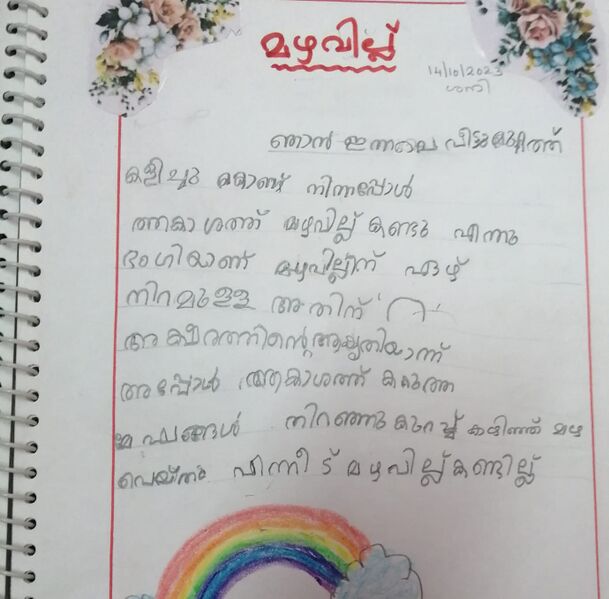 മഴവില്ല്
14/10/2023
ശനി
ഞാൻ ഇന്നലെ വീട്ടുമുറ്റത്ത്
കളിച്ചു കൊണ്ട് നിന്നപ്പോൾ
ആകാശത്ത് മഴവില്ല് കണ്ടു എന്തു
ഭംഗിയാണ് മഴവില്ലിന് ഏഴ്
നിറമുള്ള അതിന് റ
അക്ഷരത്തിന്റെ ആകൃതിയാണ്
അപ്പോൾ ആകാശത്ത് കറുത്ത
മേഘങ്ങൾ നിറഞ്ഞു കുറച്ച് കഴിഞ്ഞ് മഴ
പെയ്തു പിന്നീട് മഴവില്ല് കണ്ടില്ല്